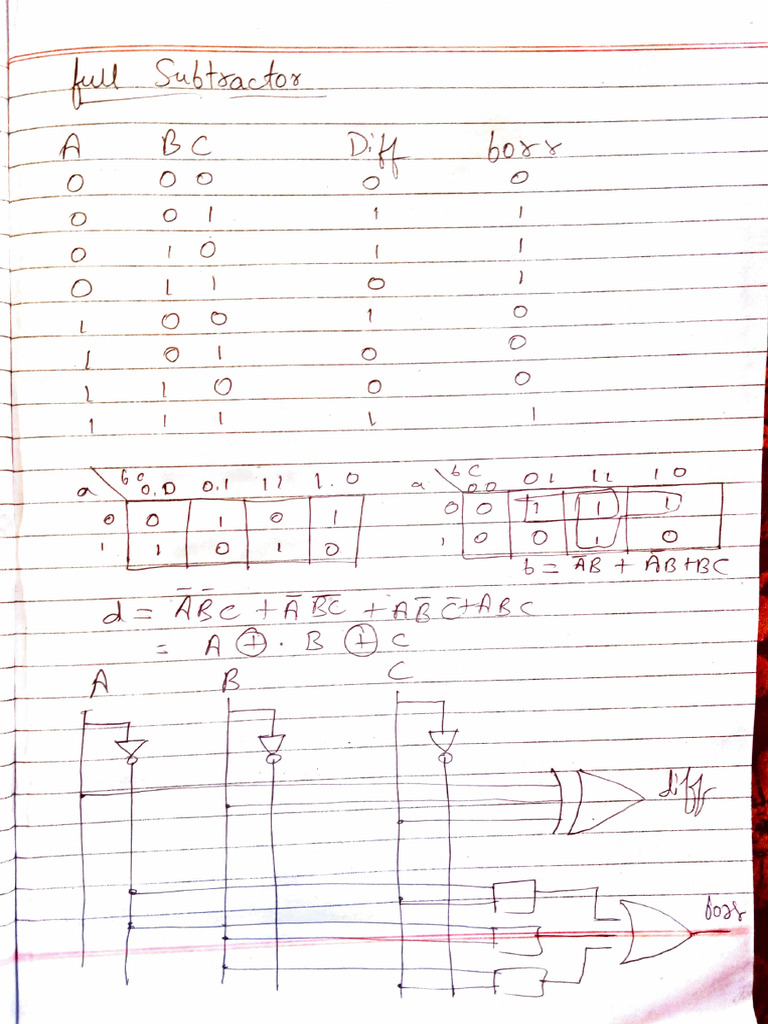 full Subtractor
A B C Diff borr
0 0 0 0 0
0 0 1 1 1
0 1 0 1 1
0 1 1 0 1
1 0 0 1 0
1 0 1 0 0
1 1 0 0 0
1 1 1 1 1
a b c 0.0 0.1 11 1.0
0 0 1 0 1
1 1 0 1 0
a b C 00 01 11 10
0 0 1 1 1
1 0 0 1 0
b = A̅B + A̅B+BC
d = A̅B̅C + A̅ B̅C̅ + AB̅ C̅+ABC
= A ⊕ · B ⊕ C
A B C
diff
borr